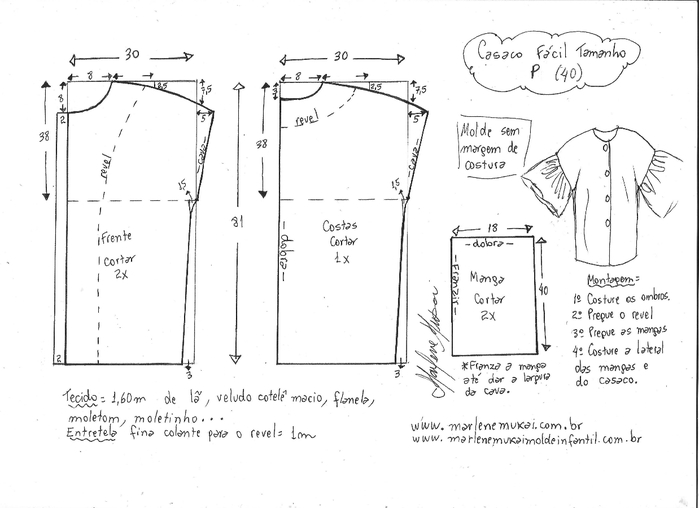 Casaco Fácil Tamanho
P (40)
30
8
2,5
7,5
8
2
5
38
cava
revel
1,5
Frente
cortar
2x
2
3
81
30
8
2,5
7,5
3
5
revel
38
cava
1,5
dobra
Costas
Cortar
1x
3
Molde sem
margem de
costura
18
dobra
Franzir
Manga
Cortar
2x
40
*Franza a manga
até dar a largura
da cava.
Marlene Mukai
Montagem=
1º Costure os ombros.
2º Pregue o revel
3º Pregue as mangas
4º Costure a lateral
das mangas e
do casaco.
Tecido = 1,60m de lã, veludo cotelê macio, flanela,
moletom, moletinho...
Entretela fina colante para o revel= 1m
www.marlenemukai.com.br
www.marlenemukaimoldeinfantil.com.br